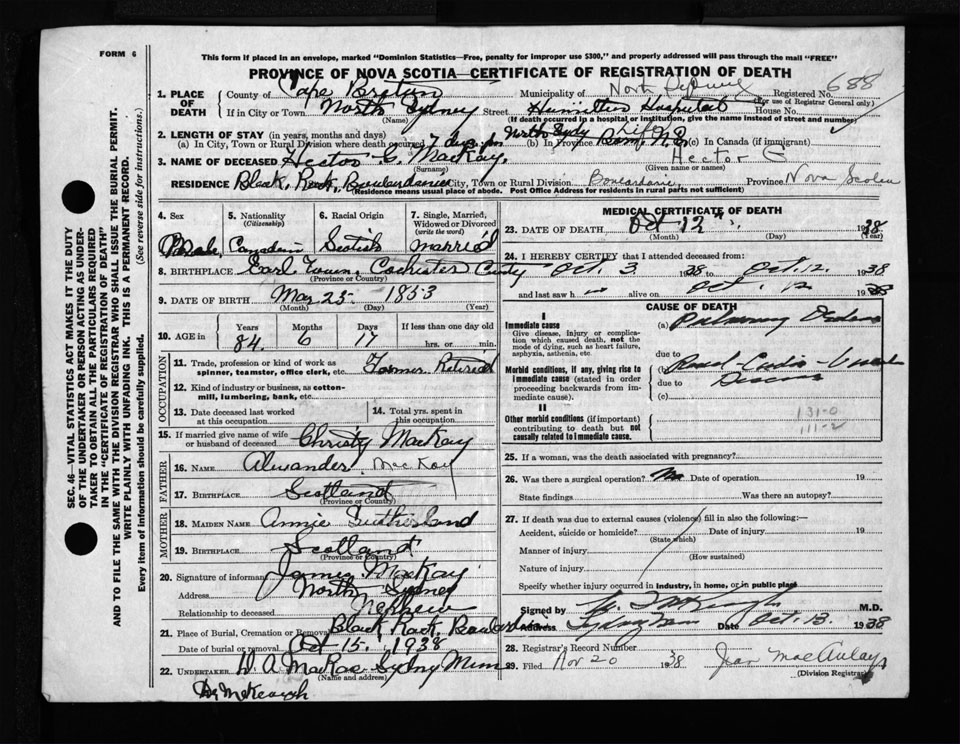 FORM 6
This form if placed in an envelope, marked "Dominion Statistics—Free, penalty for improper use $300," and properly addressed will pass through the mail "FREE"
PROVINCE OF NOVA SCOTIA—CERTIFICATE OF REGISTRATION OF DEATH
SEC. 46—VITAL STATISTICS ACT MAKES IT THE DUTY
OF THE UNDERTAKER OR PERSON ACTING AS UNDER-
TAKER TO OBTAIN ALL THE PARTICULARS REQUIRED
IN THE "CERTIFICATE OF REGISTRATION OF DEATH"
AND TO FILE THE SAME WITH THE DIVISION REGISTRAR WHO SHALL ISSUE THE BURIAL PERMIT.
WRITE PLAINLY WITH UNFADING INK. THIS IS A PERMANENT RECORD.
Every item of information should be carefully supplied. (See reverse side for instructions.)
1. PLACE OF DEATH County of Cape Breton Municipality of North Sydney Registered No. 688
(For use of Registrar General only)
If in City or Town North Sydney Street Hamilton Hospital House No.
(Name) (If death occurred in a hospital or institution, give the name instead of street and number)
2. LENGTH OF STAY (in years, months and days)
(a) In City, Town or Rural Division where death occurred 7 days North Sydy (b) in Province Life (c) In Canada (if immigrant)
3. NAME OF DECEASED Hector G. MacKay. Hector G
(Surname) (Given name or names)
RESIDENCE Black Rock, City, Town or Rural Division Boulardarie Province Nova Scotia
(Residence means usual place of abode. Post Office Address for residents in rural parts not sufficient)
4. Sex Male
5. Nationality (Citizenship) Canadian
6. Racial Origin Scotish
7. Single, Married, Widowed or Divorced (write the word) Married
8. BIRTHPLACE Earl Town, Colchester County
(Province or Country)
9. DATE OF BIRTH Mar 25 - 1853
(Month) (Day) (Year)
10. AGE in Years 84 Months 6 Days 17 If less than one day hrs. or min.
OCCUPATION
11. Trade, profession or kind of work as spinner, teamster, office clerk, etc. Farmer Retired
12. Kind of industry or business, as cotton-mill, lumbering, bank, etc.
13. Date deceased last worked at this occupation
14. Total yrs. spent in this occupation
15. If married give name of wife or husband of deceased Christy MacKay
FATHER
16. NAME Alexander MacKay
17. BIRTHPLACE Scotland
(Province or Country)
MOTHER
18. MAIDEN NAME Annie Sutherland
19. BIRTHPLACE Scotland
(Province or Country)
20. Signature of informant James MacKay
Address North Sydney
Relationship to deceased Nephew
21. Place of Burial, Cremation or Removal Black Rock
Date of burial or removal Oct 15. 1938
22. UNDERTAKER W. A. MacRae - Sydney Mines
(Name and address)
Dr McKeough
MEDICAL CERTIFICATE OF DEATH
23. DATE OF DEATH Oct 12th 1938
(Month) (Day) (Year)
24. I HEREBY CERTIFY that I attended deceased from:
Oct. 3 1938 to Oct. 12. 1938
and last saw h alive on Oct. 12 1938
CAUSE OF DEATH
I
Immediate cause
Give disease, injury or complication which caused death, not the mode of dying, such as heart failure, asphyxia, asthenia, etc.
(a) Pulmonary Oedema
due to
Morbid conditions, if any, giving rise to immediate cause (stated in order proceeding backwards from immediate cause).
due to
(c)
II
Other morbid conditions (if important) contributing to death but not causally related to immediate cause.
131-0
111-2
25. If a woman, was the death associated with pregnancy?
26. Was there a surgical operation? No Date of operation 19
State findings Was there an autopsy?
27. If death was due to external causes (violence) fill in also the following:—
Accident, suicide or homicide? Date of injury 19
(State which)
Manner of injury
(How sustained)
Nature of injury
Specify whether injury occurred in industry, in home, or in public place
Signed by M.D.
Address Sydney Mines Date Oct. 13. 1938
28. Registrar's Record Number
29. Filed Nov 20 1938 Jean MacAulay
(Division Registrar)